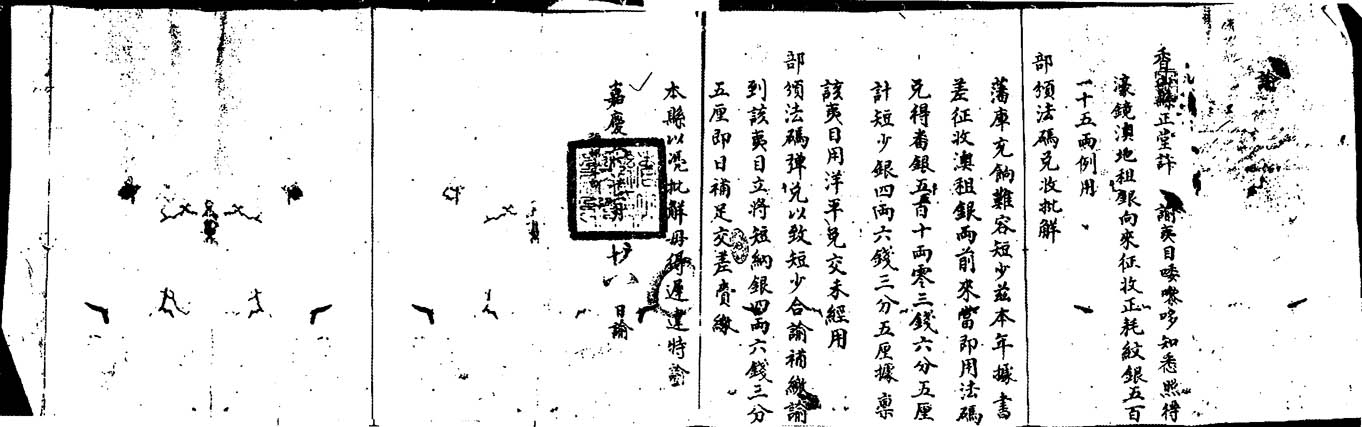 諭
香山縣正堂許 諭夷目唩嚟哆知悉照得
濠鏡澳地租銀向來征收正耗紋銀五百
一十五兩例用
部頒法碼兌收批解
藩庫充餉難容短少茲本年據書
差征收澳租銀兩前來當即用法碼
兌得番銀五百十兩零三錢六分五厘
計短少銀四兩六錢三分五厘據稟
該夷目用洋平兌交未經用
部頒法碼彈兌以致短少合諭補繳諭
到該夷目立將短納銀四兩六錢三分
五厘即日補足交差賫繳
本縣以憑批解毋得遲違特諭
嘉慶 月 十 日諭